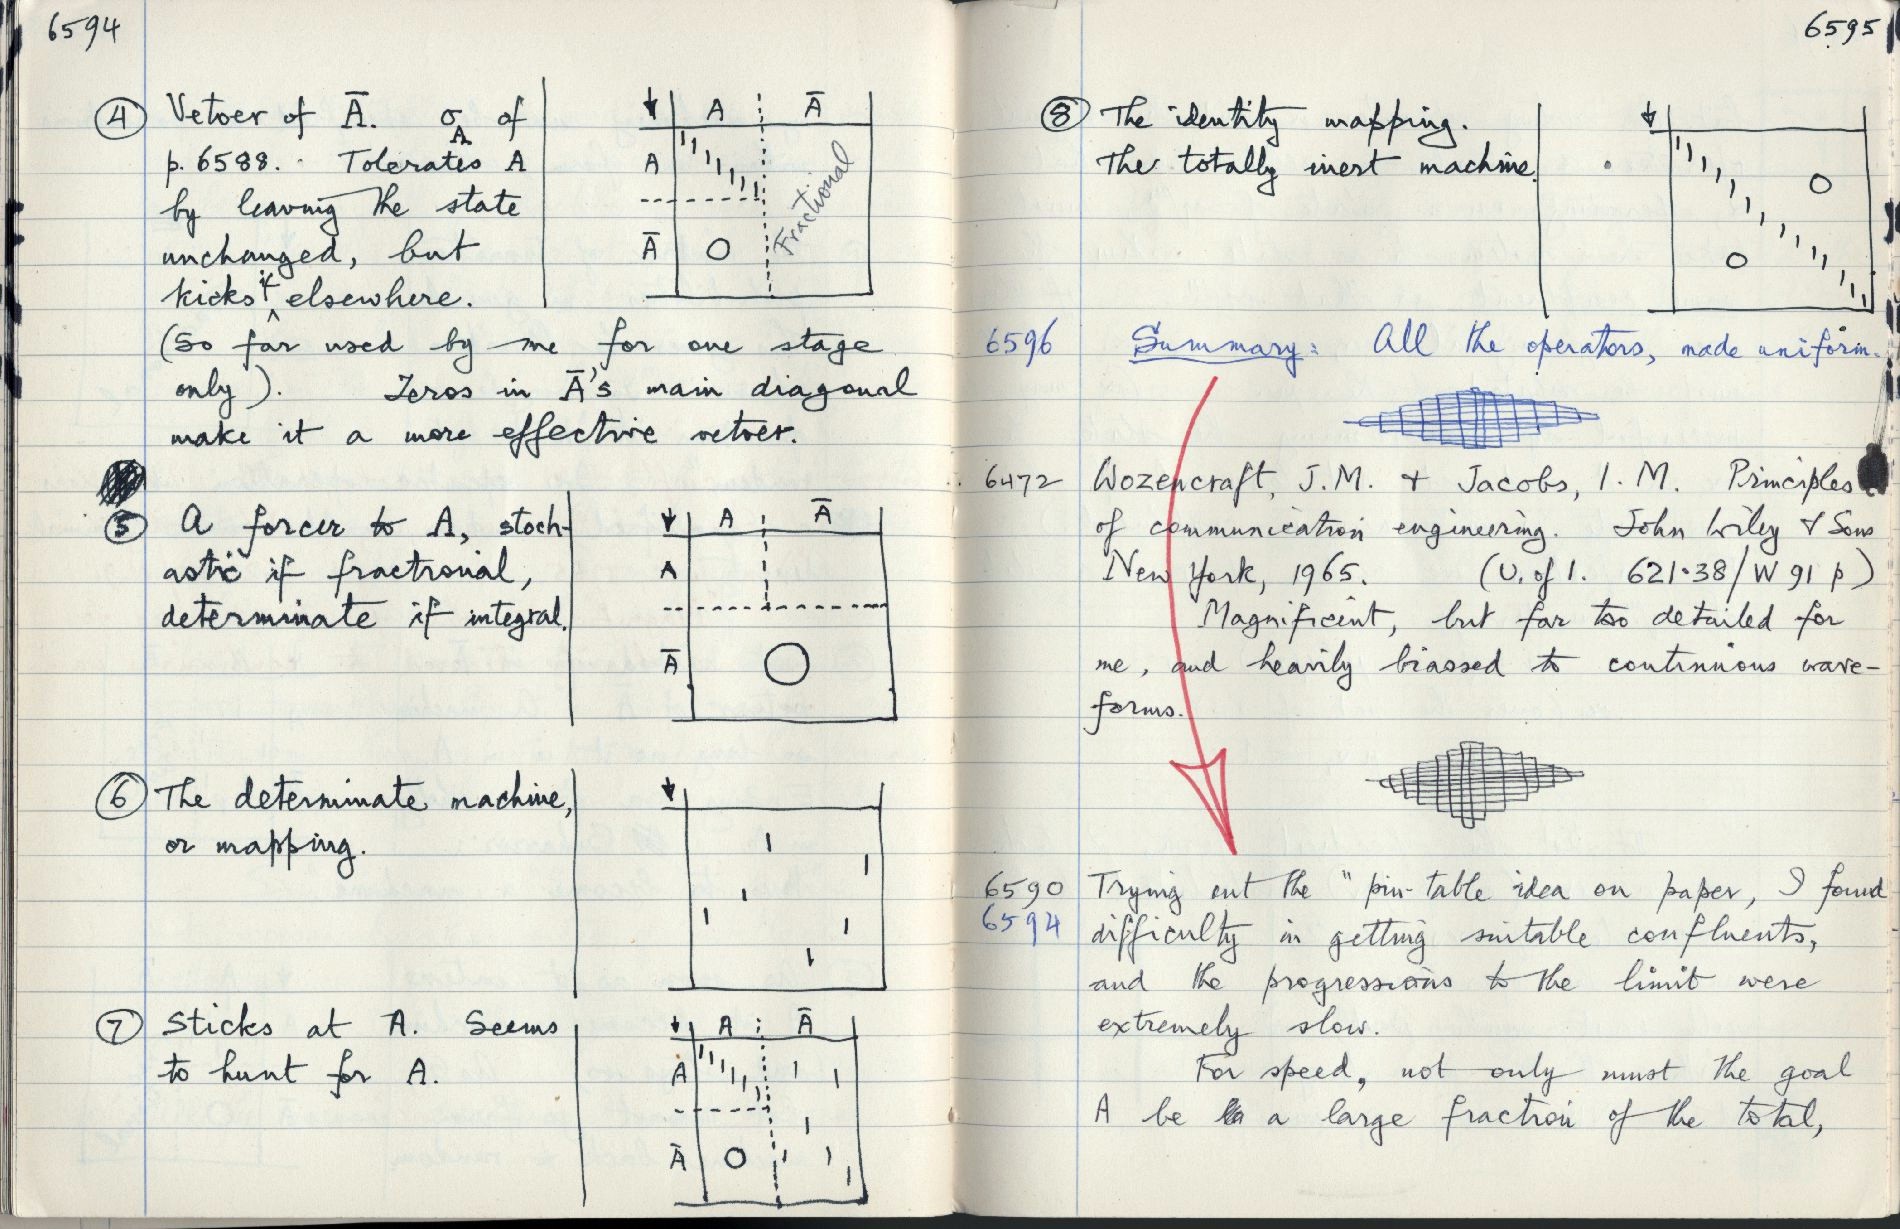 6594
④ Vetoer of Ā. σ_A of
p. 6588. Tolerates A
by leaving the state
unchanged, but
kicks it elsewhere.
(So far used by me for one stage
only). Zeros in Ā's main diagonal
make it a more effective vetoer.
↓ A Ā
A
Ā O
Fractional
⑤ A forcer to A, stoch-
astic if fractional,
determinate if integral.
↓ A Ā
A
Ā O
⑥ The determinate machine,
or mapping.
↓
⑦ Sticks at A. Seems
to hunt for A.
↓ A Ā
A
Ā O
6595
⑧ The identity mapping.
The totally inert machine.
↓
O
O
6596 Summary: All the operators, made uniform.
6472 Wozencraft, J.M. + Jacobs, I.M. Principles
of communication engineering. John Wiley & Sons
New York, 1965. (U. of I. 621.38/W 91 p)
Magnificent, but far too detailed for
me, and heavily biassed to continuous wave-
forms.
6590 Trying out the "pin-table idea on paper, I found
6594 difficulty in getting suitable confluents,
and the progressions to the limit were
extremely slow.
For speed, not only must the goal
A be a large fraction of the total,